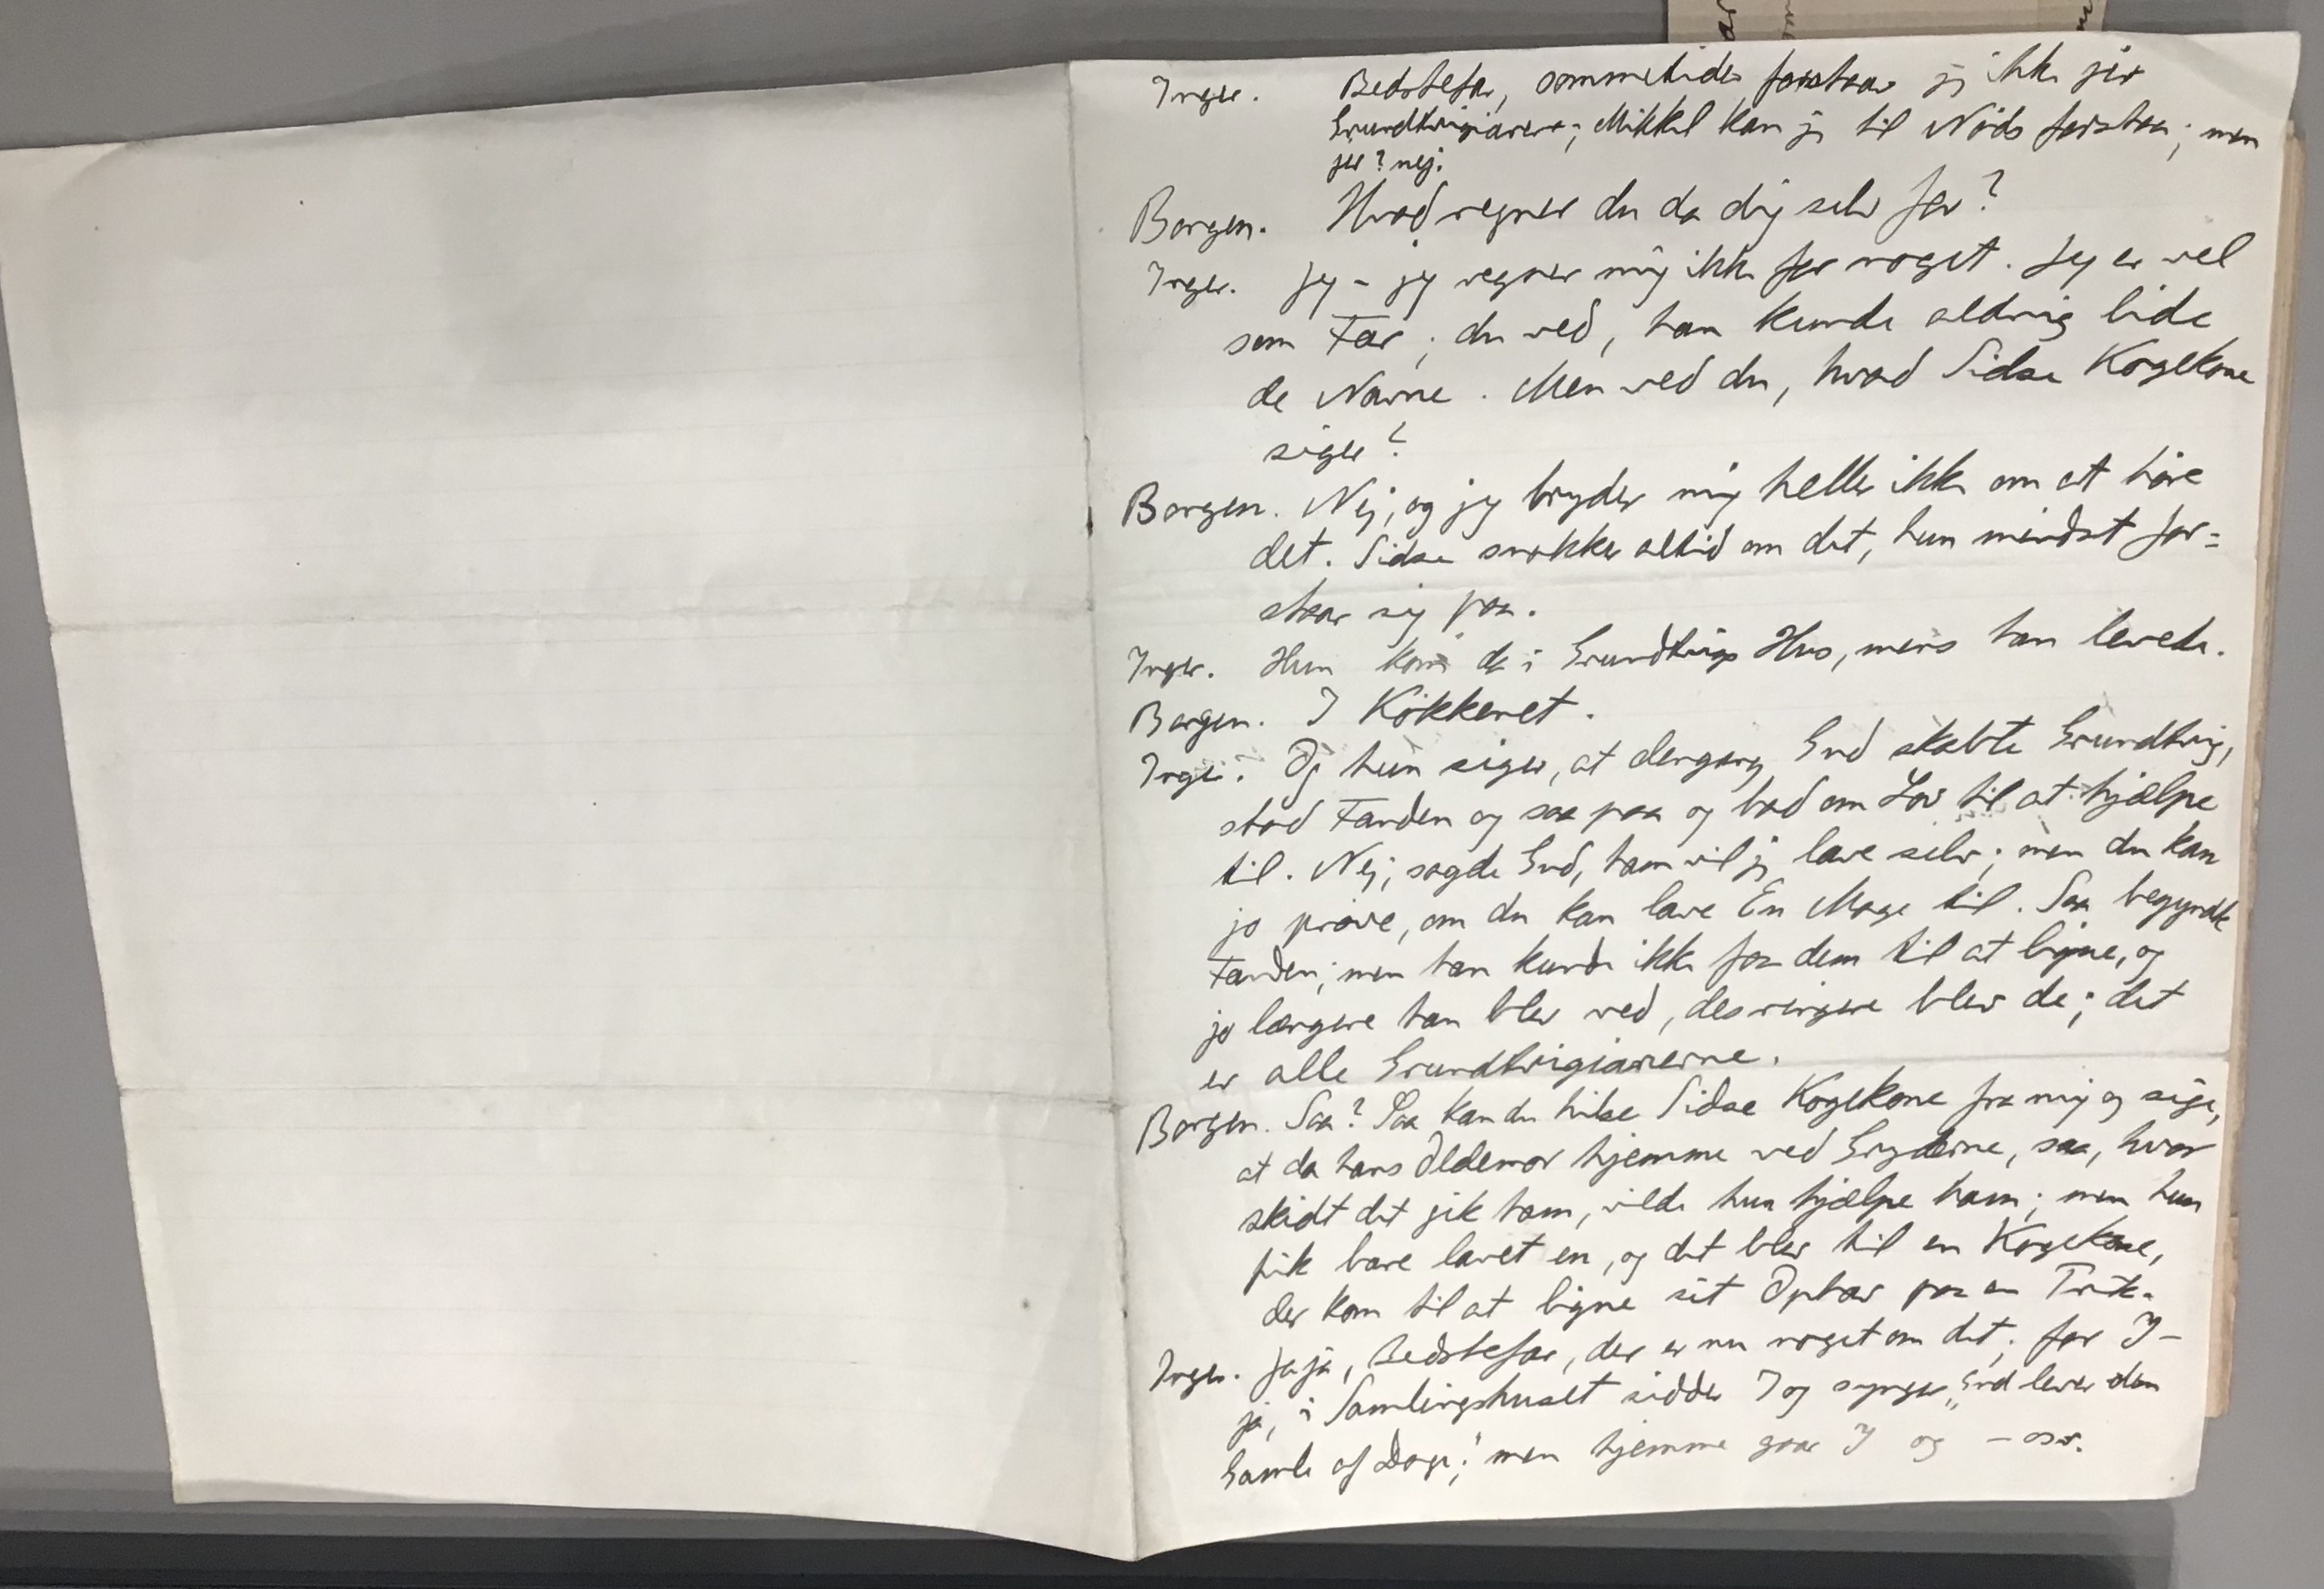 Inger. Bedstefar, sommetider forstaar jeg ikke jer
Grundtvigianere; Mikkel kan jeg til Nöds forstaa; men
jer? nej.
Borgen. Hvad regner du da dig selv for?
Inger. Jeg – jeg regner mig ikke for noget. Jeg er vel
som Far; du ved, han kunde aldrig lide
de Navne. Men ved du, hvad Sidse Kogekone
siger?
Borgen. Nej, og jeg bryder mig heller ikke om at höre
det. Sidse snakker altid om det, hun mindst for=
staar sig paa.
Inger. Hun kom da i Grundtvigs Hus, mens han levede.
Borgen. I Kökkenet.
Inger. Og hun siger, at dengang Gud skabte Grundtvig,
stod Fanden og saa paa og bad om Lov til at hjælpe
til. Nej, sagde Gud, ham vil jeg lave selv; men du kan
jo pröve, om du kan lave En Mage til. Saa begyndte
Fanden; men han kunde ikke faa dem til at ligne, og
jo længere han blev ved, des ringere blev de; det
er alle Grundtvigianerne.
Borgen. Saa? Saa kan du hilse Sidse Kogekone fra mig og sige,
at da hans Oldemor hjemme ved Gryderne, saa, hvor
skidt det gik ham, vilde hun hjælpe ham; men hun
fik bare lavet en, og det blev til en Kogekone,
der kom til at ligne sit Ophav paa en Prik.
Inger. Ja ja, Bedstefar, der er nu noget om det; for I –
ja, i Samlingshuset sidder I og synger „Gud lever den
Gamle af Dage;" men hjemme gaar I og – osv.